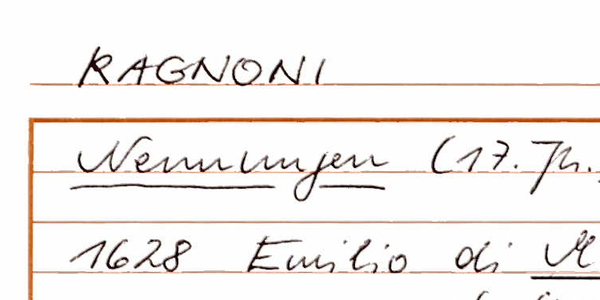 RAGNONI
Nennungen (17. Jh.
1628 Emilio di